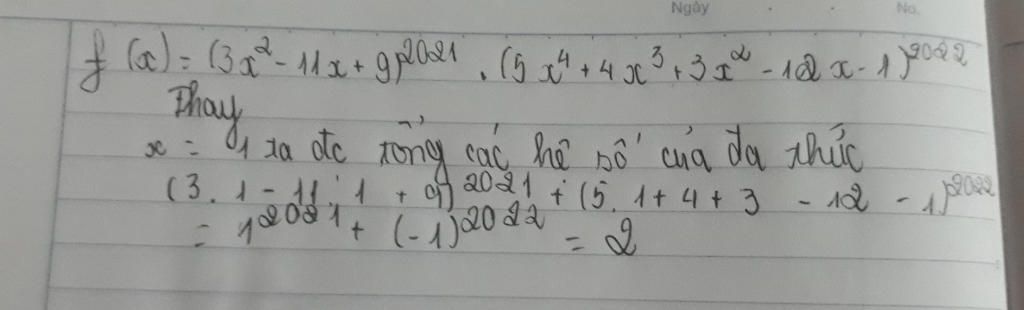 Ngày No.
f(x) = (3x² - 11x + 9)²⁰²¹ . (5x⁴ + 4x³ + 3x² - 12x - 1)²⁰²²
Thay
x = 1 ta đc tổng các hệ số của đa thức
(3.1 - 11.1 + 9)²⁰²¹ + (5.1 + 4 + 3 - 12 - 1)²⁰²²
= 1²⁰²¹ + (-1)²⁰²² = 2